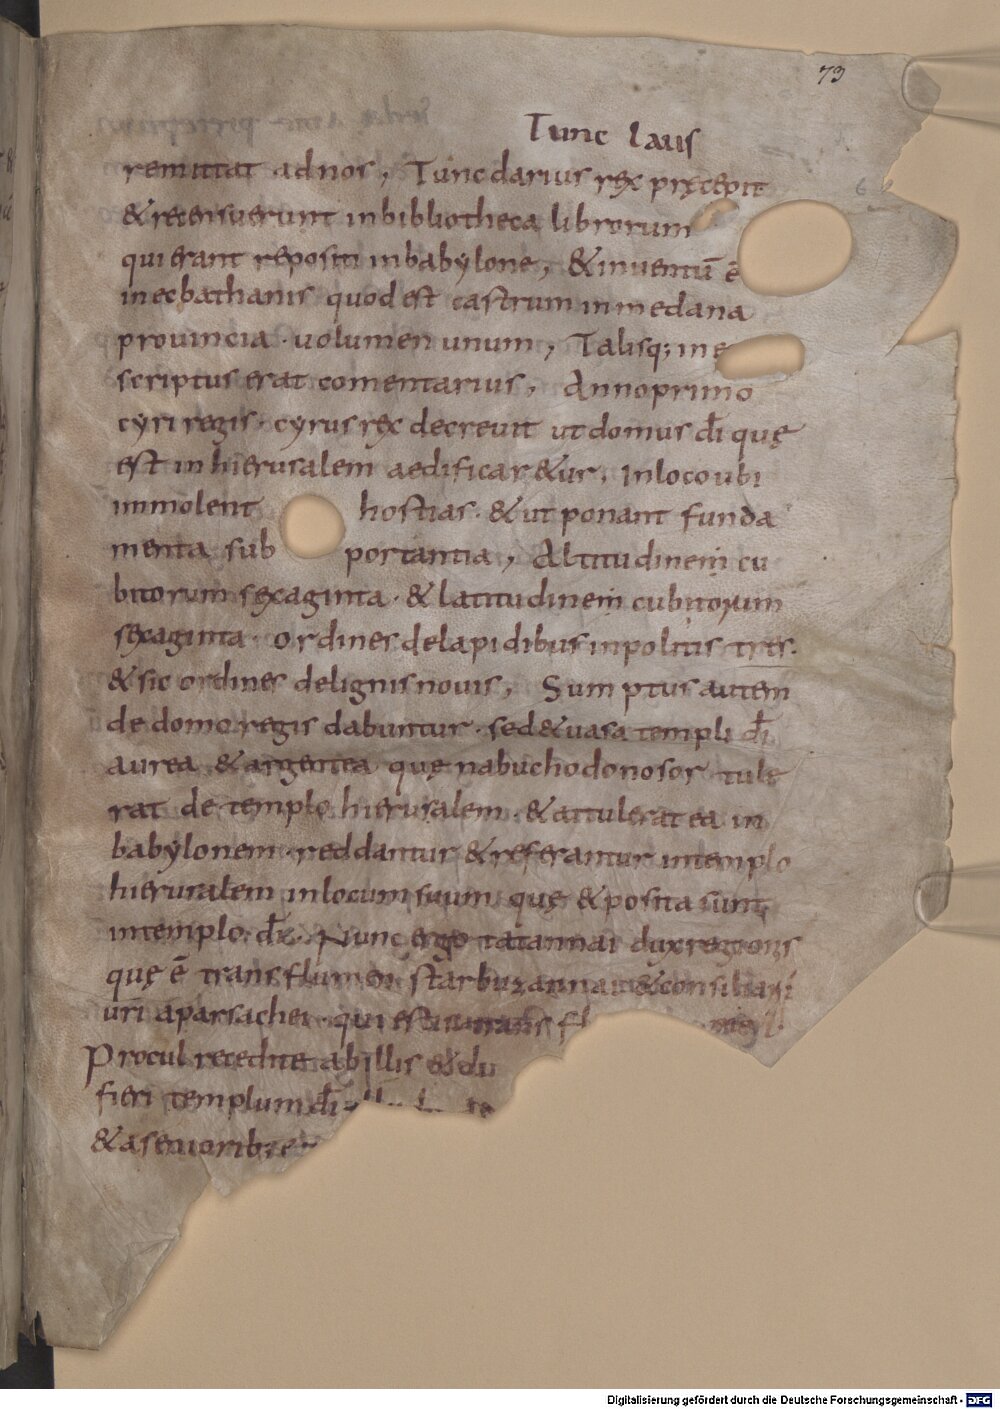 73
Tunc laus
remittat ad nos, Tunc darius rex pręcepit
& recensuerunt in bibliotheca librorum
qui erant repositi in babylone, & inuentū ē
in ecbathanis quod est castrum in medana
prouincia · uolumen unum, Talisq; in e
scriptus erat comentarius, Anno primo
cyri regis · cyrus rex decreuit ut domus dī quę
est in hierusalem aedificar&ur, In loco ubi
immolent hostias · & ut ponant funda
menta sub portantia, Altitudinem cu
bitorum sexaginta · & latitudinem cubitorum
sexaginta · ordines de lapidibus inpolitis tres.
& sic ordines de lignis nouis, Sumptus autem
de domo regis dabuntur · sed & uasa templi dī
aurea & argentea quę nabuchodonosor tulę
rat de templo hierusalem · & attulerat ea in
babylonem · reddantur & referantur in templo
hierusalem in locum suum quę & posita sunt
in templo dī. Nunc ergo tatannai dux regionis
quę ē trans flumen starbuzannai & consiliarii
uri aparsachei · qui estis trans fl
Procul recedite ab illis & du
fieri templum dī
& a seniorib;
Digitalisierung gefördert durch die Deutsche Forschungsgemeinschaft - DFG